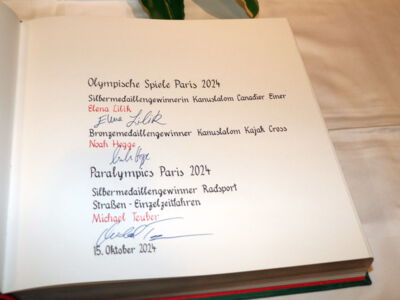 Olympische Spiele Paris 2024
Silbermedaillengewinnerin Kanuslalom Canadier Einer
Elena Lilik
Elena Lilik
Bronzemedaillengewinner Kanuslalom Kajak Cross
Noah Hegge
Paralympics Paris 2024
Silbermedaillengewinner Radsport
Straßen-Einzelzeitfahren
Michael Teuber
15. Oktober 2024